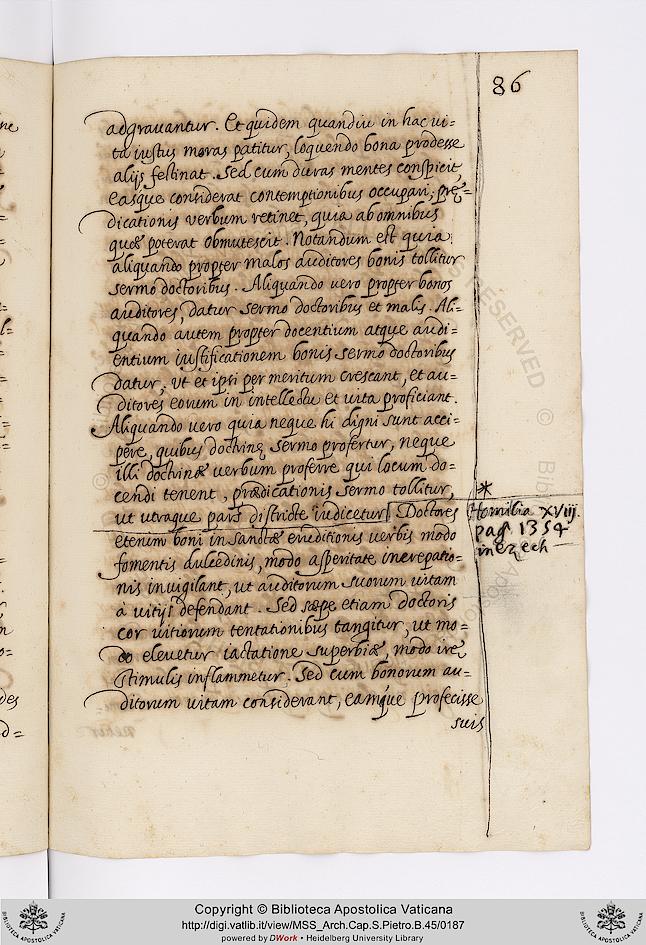 86
adgrauantur. Et quidem quandiu in hac ui=
ta iustus moras patitur, loquendo bona prodesse
alijs festinat. Sed cum duras mentes conspicit,
easque considerat contemptionibus occupari; prę=
dicationis verbum retinet, quia ab omnibus
quæ poterat obmutescit. Notandum est quia
aliquando propter malos auditores bonis tollitur
sermo doctoribus. Aliquando uero propter bonos
auditores, datur sermo doctoribus et malis. Ali=
quando autem propter docentium atque audi=
entium iustificationem bonis sermo doctoribus
datur, ut et ipsi per meritum crescant, et au=
ditores eorum in intellectu et uita proficiant.
Aliquando uero quia neque hi digni sunt acci=
pere, quibus doctrinę sermo profertur, neque
illi doctrinæ uerbum proferre qui locum do=
cendi tenent, prædicationis sermo tollitur,
ut utraque pars districte iudicetur] Doctores
etenim boni in sanctæ eruditionis uerbis modo
fomentis dulcedinis, modo asperitate increpatio=
nis inuigilant, ut auditorum suorum uitam
à uitijs defendant. Sed sæpe etiam doctoris
cor uitiorum tentationibus tangitur, ut mo=
do eleuetur iactatione superbiæ, modo irę
stimulis inflammetur. Sed cum bonorum au=
ditorum uitam considerant, eamque profecisse
suis
*
Homilia XViij
pag. 1354
in ezech
Copyright © Biblioteca Apostolica Vaticana
http://digi.vatlib.it/view/MSS_Arch.Cap.S.Pietro.B.45/0187
powered by DWork • Heidelberg University Library